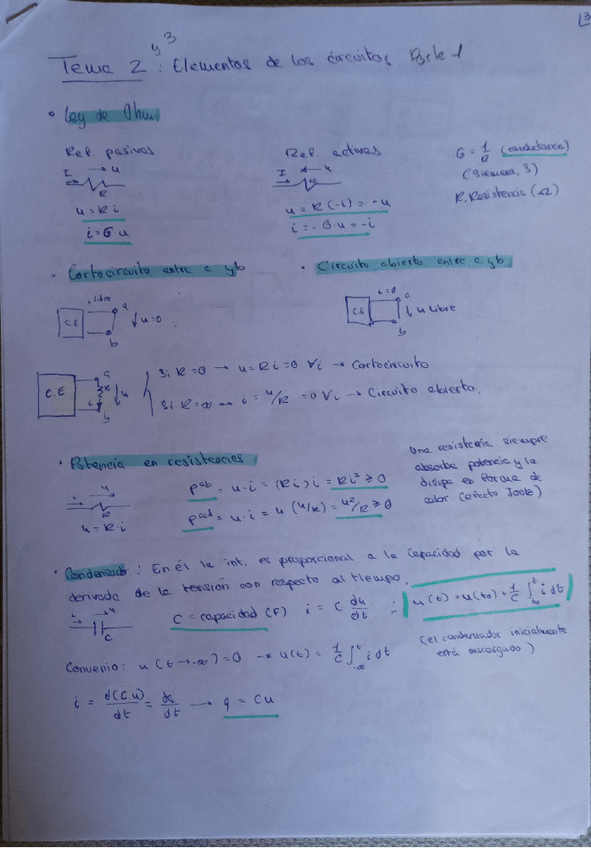 L3
Tema 2 y 3 : Elementos de los circuitos Parte 1
• Ley de Ohm
Ref. pasivas
I u
R
u = R i
i = G·u
Ref. activas
I u
R
u = R(-i) = -u
i = -G·u = -i
G = 1/R (conductancia)
(Siemens, S)
R. Resistencia (Ω)
• Cortocircuito entre a y b
i libre
C.E
a
b
↓u=0
• Circuito abierto entre a y b
i=0
a
↓u libre
b
C.E
a
R
i
b
↓u
Si R=0 → u = Ri = 0 ∀i → Cortocircuito
Si R=∞ → i = u/R = 0 ∀i → Circuito abierto.
• Potencia en resistencias
u
R
u = R·i
p ab = u·i = (Ri) i = Ri² ≥ 0
= u·i = u (u/R) = u²/R ≥ 0
Una resistencia siempre
absorbe potencia y la
disipa en forma de
calor (efecto Joule)
• Condensador : En él la int. es proporcional a la capacidad por la
derivada de la tensión con respecto al tiempo.
i u
C
C = capacidad (F) i = C du/dt ; u(t) = u(t0) + 1/C ∫ t0 t i dt
Convenio: u(t→-∞) = 0 → u(t) = 1/C ∫ -∞ t i dt
(el condensador inicialmente
está descargado)
i = d(Cu)/dt = dq/dt → q = Cu